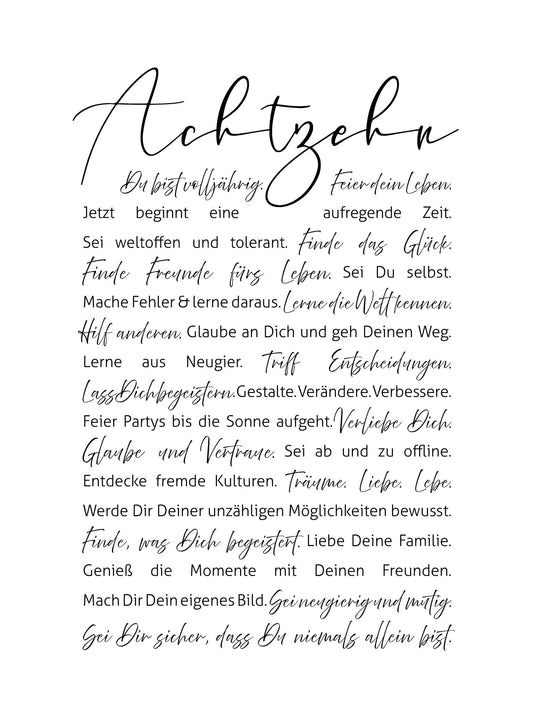 Achtzehn
Du bist volljährig. Feier dein Leben.
Jetzt beginnt eine aufregende Zeit.
Sei weltoffen und tolerant. Finde das Glück.
Finde Freunde fürs Leben. Sei Du selbst.
Mache Fehler & lerne daraus. Lerne die Welt kennen.
Hilf anderen. Glaube an Dich und geh Deinen Weg.
Lerne aus Neugier. Triff Entscheidungen.
Lass Dich begeistern. Gestalte. Verändere. Verbessere.
Feier Partys bis die Sonne aufgeht. Verliebe Dich.
Glaube und Vertraue. Sei ab und zu offline.
Entdecke fremde Kulturen. Träume. Liebe. Lebe.
Werde Dir Deiner unzähligen Möglichkeiten bewusst.
Finde, was Dich begeistert. Liebe Deine Familie.
Genieß die Momente mit Deinen Freunden.
Mach Dir Dein eigenes Bild. Sei neugierig und mutig.
Sei Dir sicher, dass Du niemals allein bist.